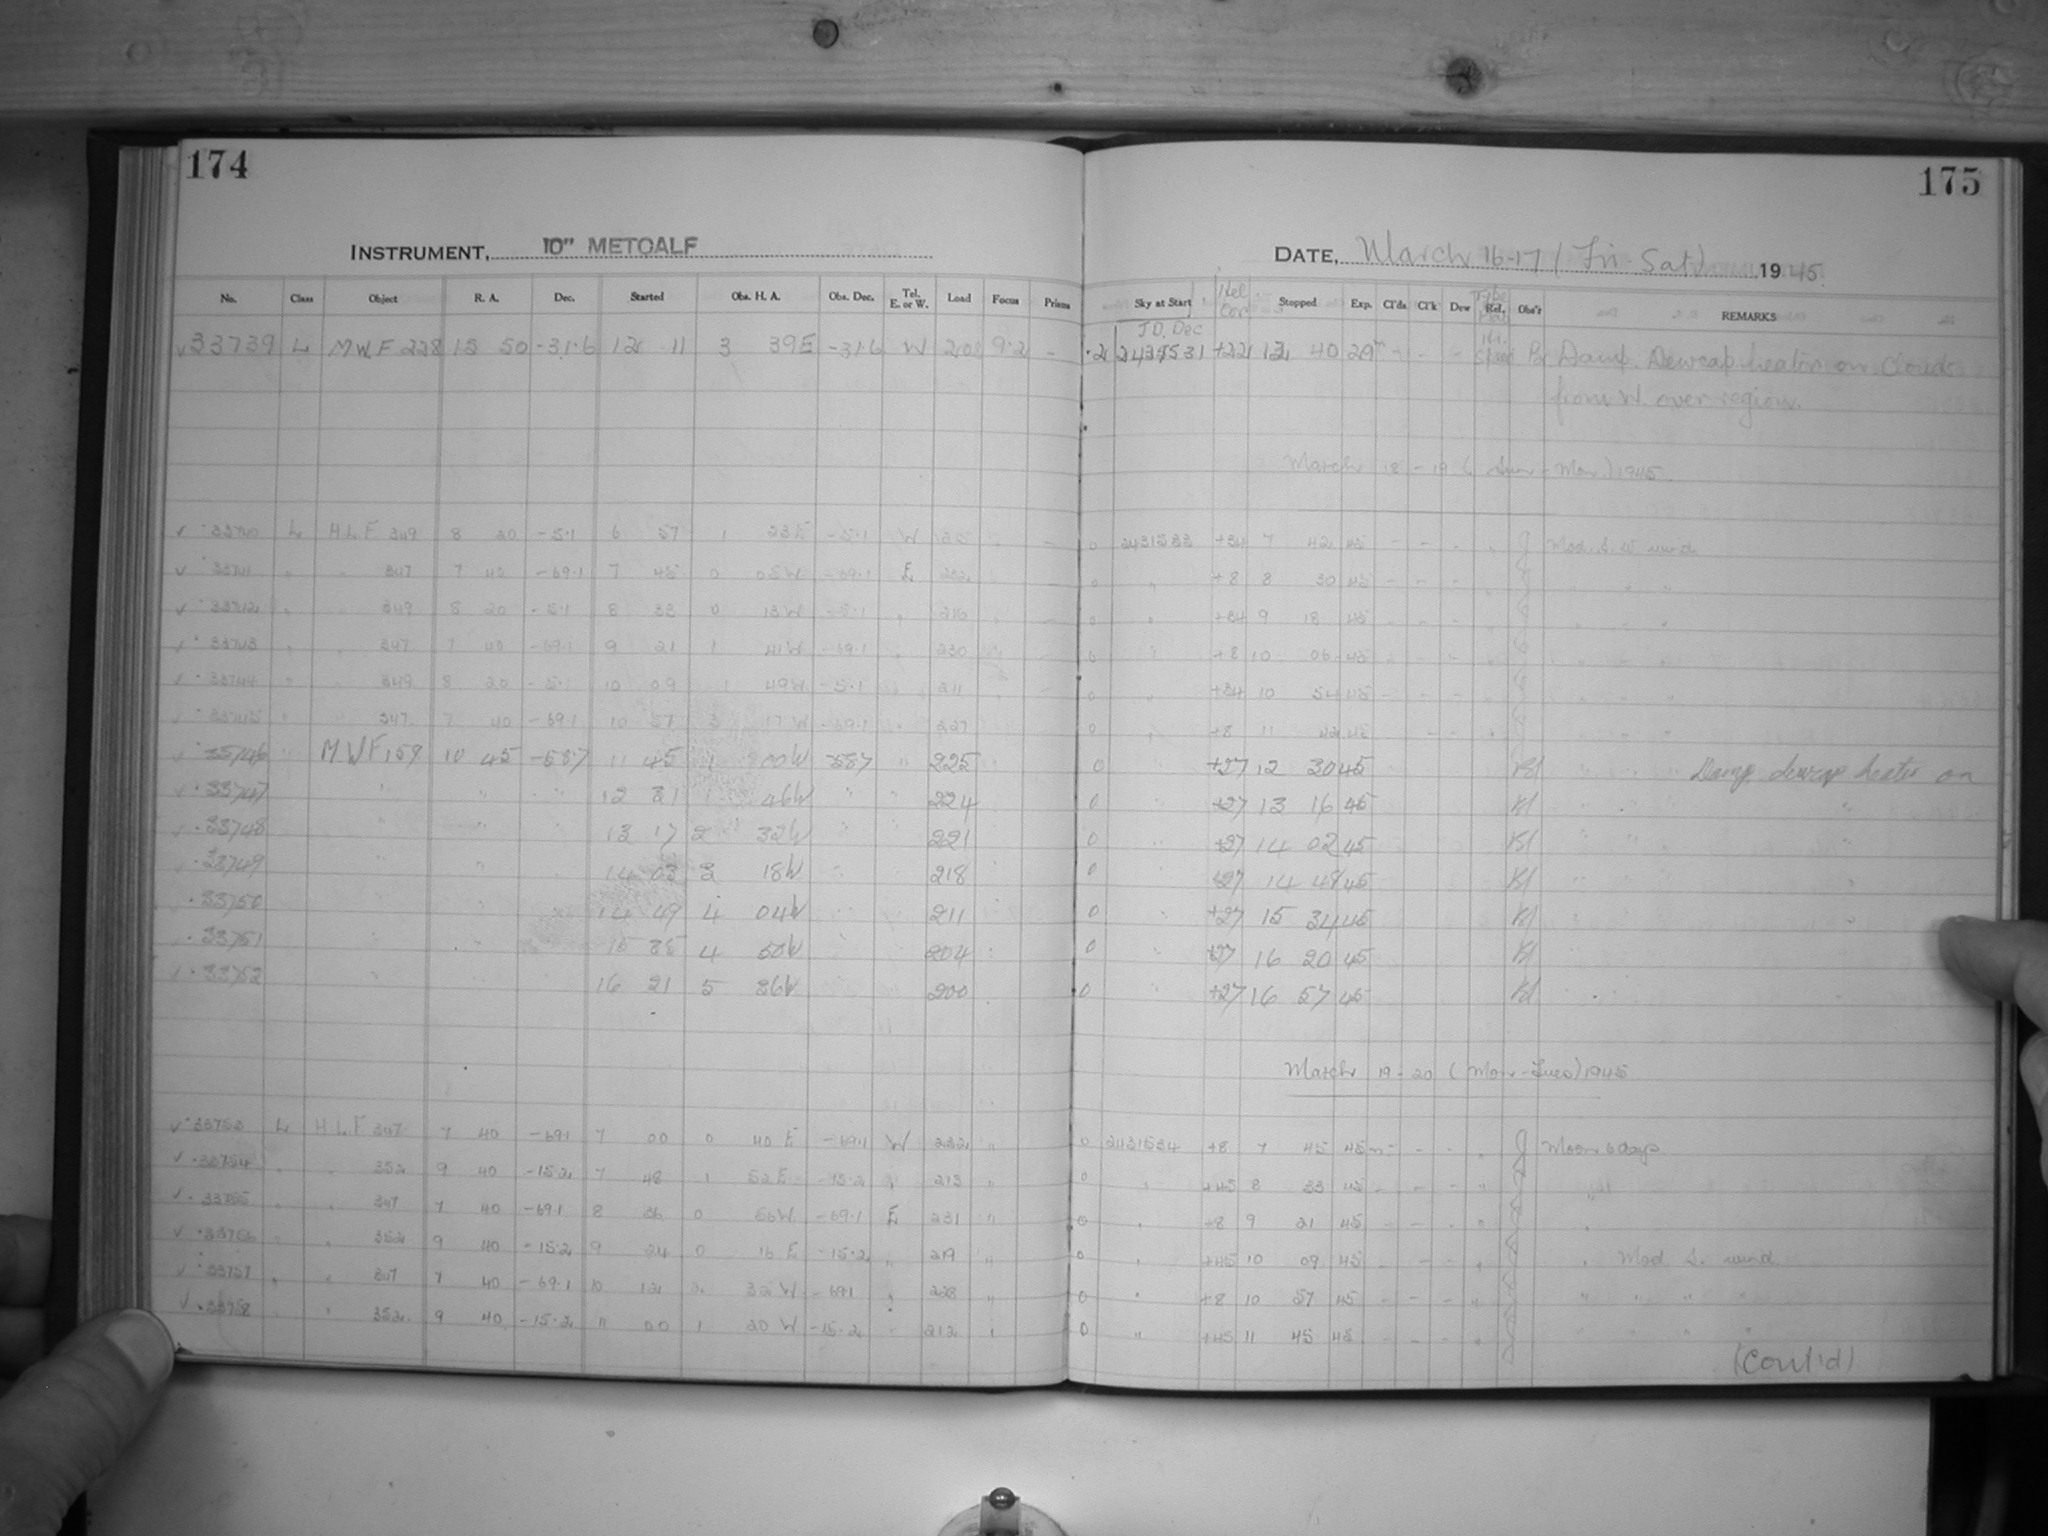 174
175
INSTRUMENT, 10" METCALF
DATE, March 16-17 (Fri Sat) 1945.
No. Class Object R. A. Dec. Started Obs. H. A. Obs. Dec. Tel. E. or W. Load Focus Prism Sky at Start Stopped Exp. Cl'ds Cl'k Dew Rel. Obs'r REMARKS
J.D. Dec
33739 L MWF 228 15 50 -31.6 12 11 3 39E -31.6 W 208 9.2 - +22 12 40 29 Br Damp. Dewcap heater on. Clouds
from W. over region.
March 18-19 (Sun-Mon) 1945.
33740 L H.L.F 349 8 20 -5.1 6 57 1 23E -5.1 W 0 2431533 +34 7 42 45 Mod. S.W. wind
33741 " " 347 7 40 -69.1 7 45 0 05W -69.1 E 0 " +8 8 30 45 " " "
33742 " " 349 8 20 -5.1 8 33 0 13W -5.1 " 0 " +34 9 18 45 " " "
33743 " " 347 7 40 -69.1 9 21 1 41W -69.1 " 230 0 " +8 10 06 45 " " "
33744 " " 349 8 20 -5.1 10 09 1 49W -5.1 " 211 0 " +34 10 54 45 " " "
33745 " " 347 7 40 -69.1 10 57 3 17W -69.1 " 227 0 " +8 11 42 45 " " "
33746 " MWF 159 10 45 -58.7 11 45 1 00W -58.7 " 225 0 +27 12 30 45 Bl " " Damp dewcap heater on
33747 " " " 12 31 1 46W " " 224 0 " +27 13 16 45 Bl " " "
33748 " " " 13 17 2 32W " " 221 0 " +27 14 02 45 Bl " " "
33749 " " " 14 03 3 18W " 218 0 " +27 14 48 45 Bl " "
33750 14 49 4 04W 211 0 " +27 15 34 45 Bl " "
33751 " " 15 35 4 50W 204 0 " +27 16 20 45 Bl
33752 16 21 5 36W 200 0 " +27 16 57 45 Bl
March 19-20 (Mon-Tues) 1945
33753 L H.L.F 347 7 40 -69.1 7 00 0 40 E -69.1 W 232 " 0 2431534 +8 7 45 45 Moon 6 days
33754 " " 352 9 40 -15.2 7 48 1 52E -15.2 " 213 " 0 " +45 8 33 45 "
33755 " " 347 7 40 -69.1 8 36 0 56W -69.1 E 231 " 0 " +8 9 21 45 "
33756 " " 352 9 40 -15.2 9 24 0 16 E -15.2 " 219 " 0 " +45 10 09 45 " Mod S. wind
33757 " " 347 7 40 -69.1 10 12 2 32 W -69.1 " 228 " 0 " +8 10 57 45 " " " "
33758 " " 352 9 40 -15.2 11 00 1 20 W -15.2 " 212 " 0 " +45 11 45 45 " " " "
(Cont'd)